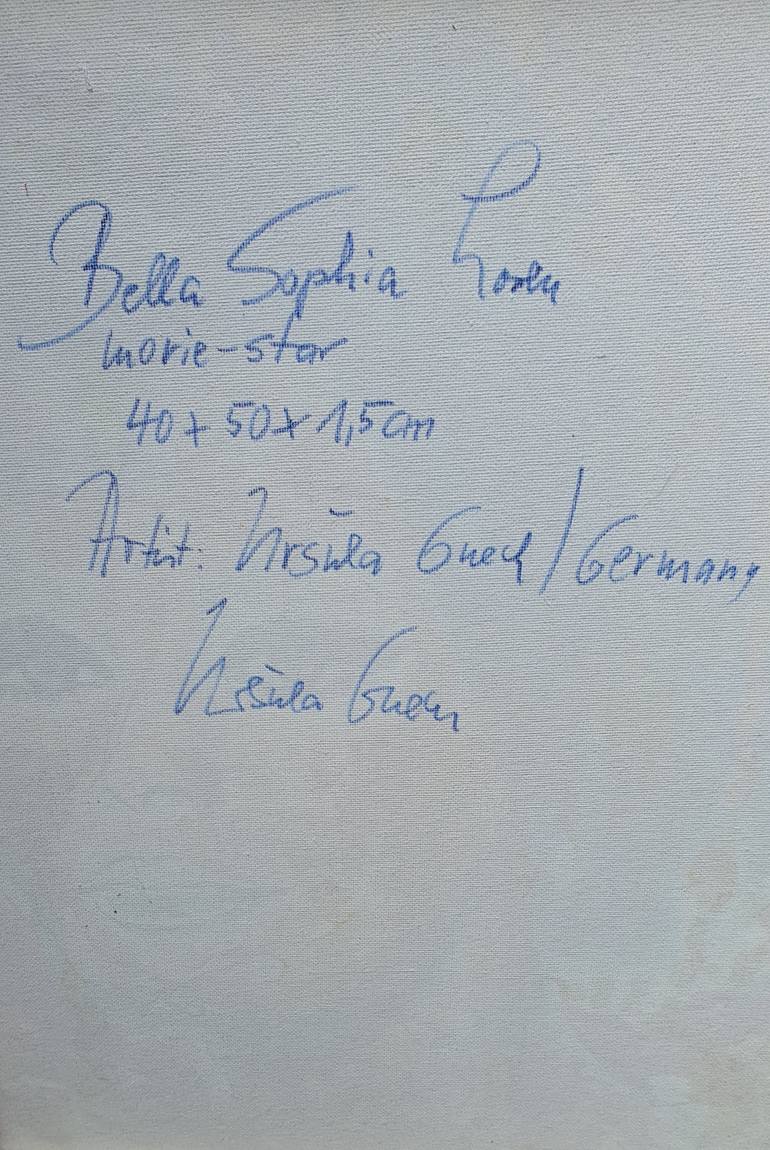 Bella Sophia Loren
movie-star
40x50x1,5cm
Artist: Ursula Gnech/Germany
Ursula Gnech